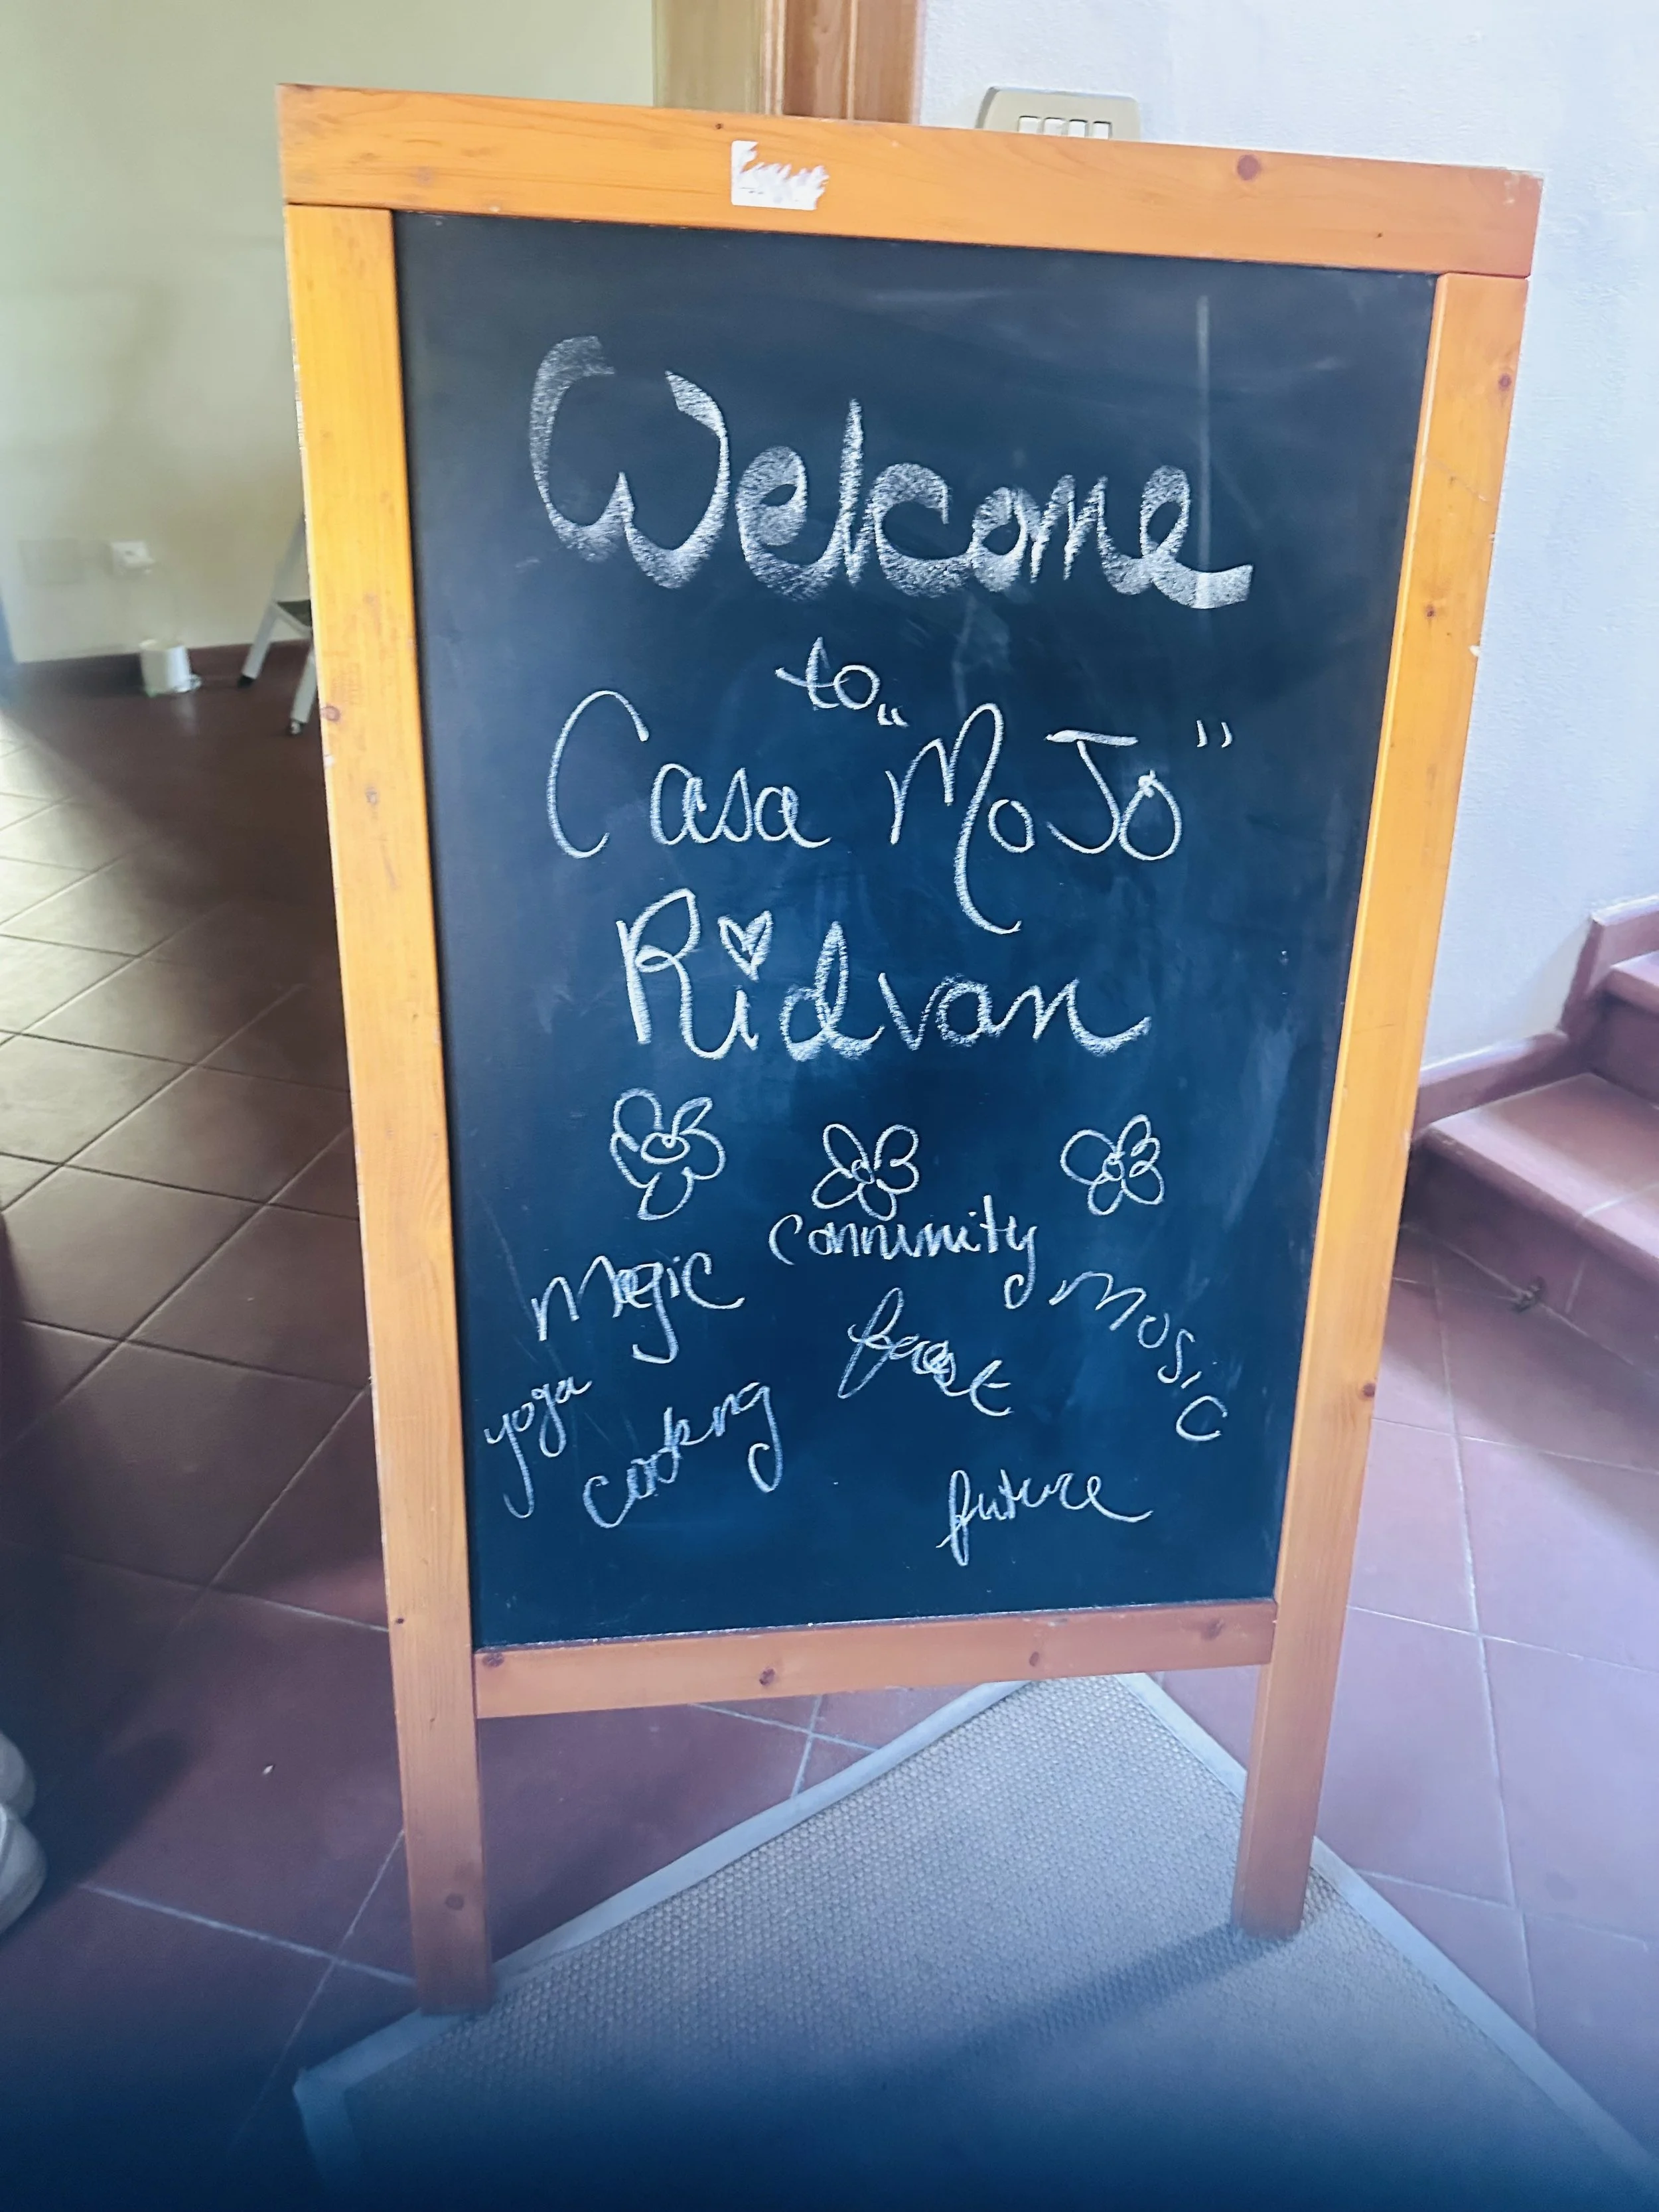 Welcome
to
Casa "MoJo"
Ridvan
Community
Magic
Music
feast
yoga
cooking
future